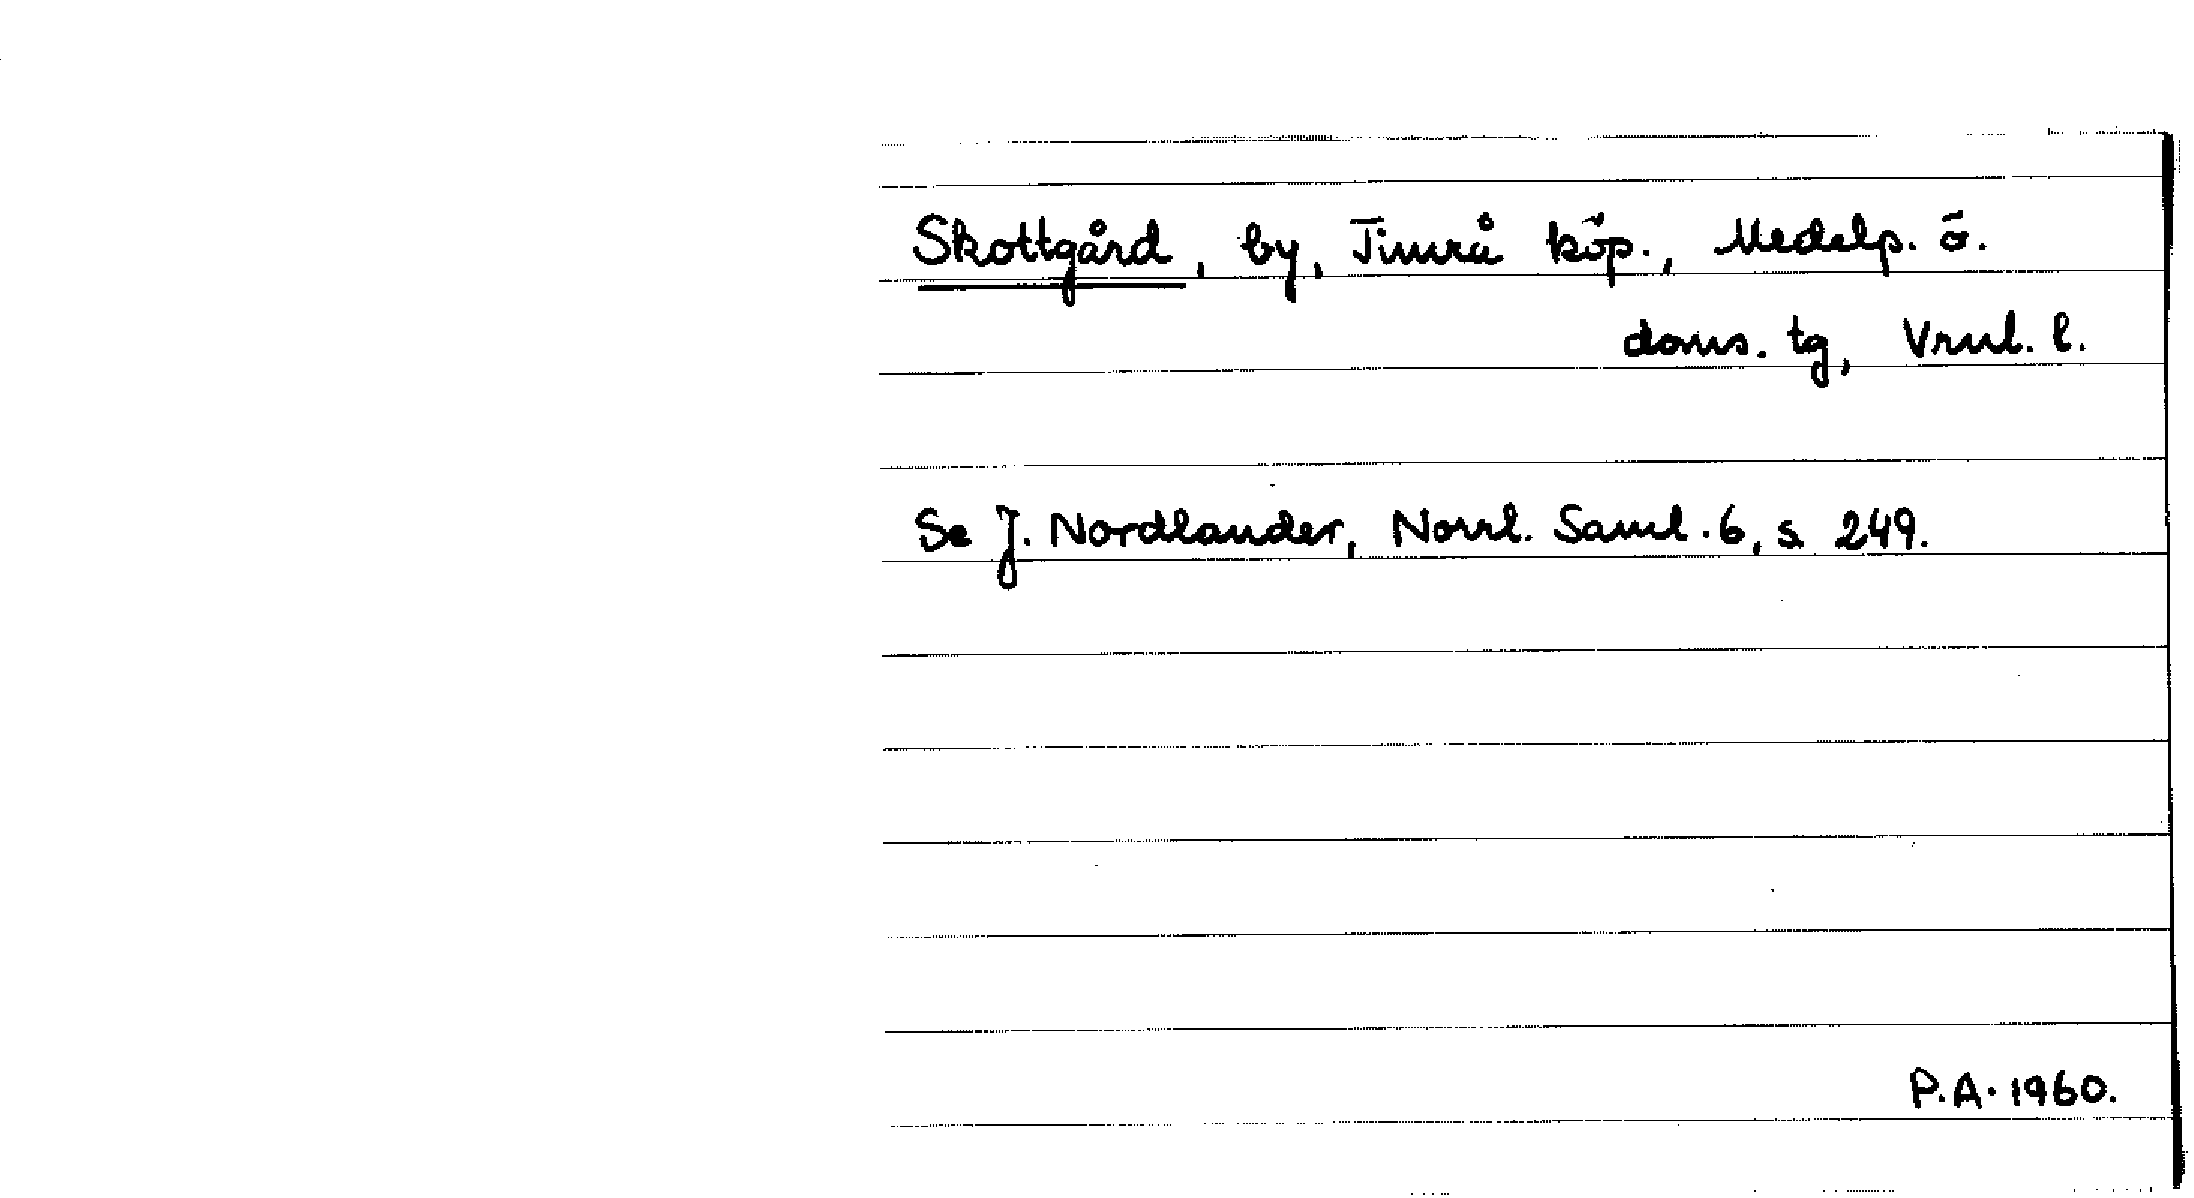 Skottgård, by, Timrå köp., Medelp. ö.
doms. tg, Vrnl. l.
Se J. Nordlander, Norrl. Saml. 6, s. 249.
P.A. 1960.